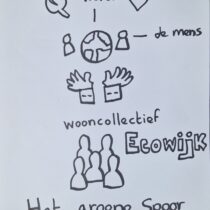 de mens
wooncollectief
Ecowijk
Het groene Spoor